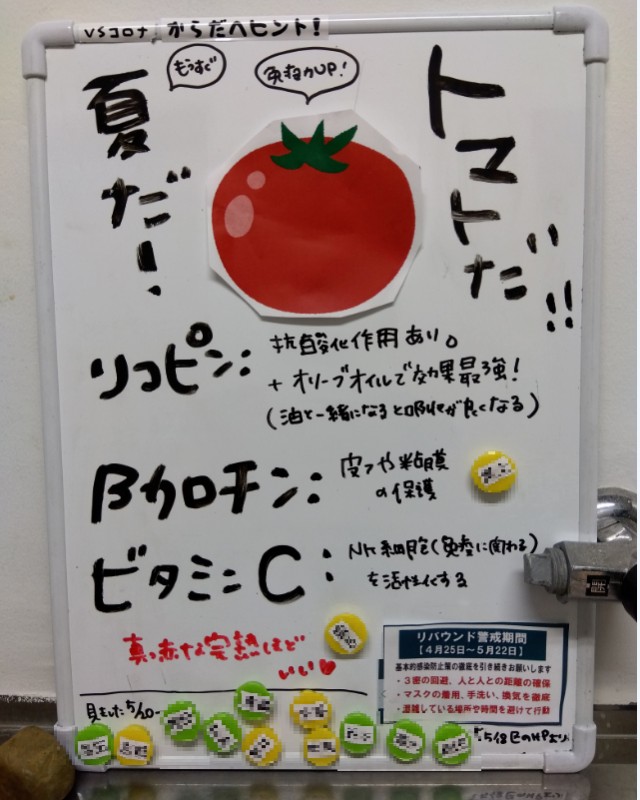 VSコロナ からだへヒント!
もうすぐ
夏だ!
免疫力UP!
トマトだ!!
リコピン:
抗酸化作用あり。
+オリーブオイルで効果最強!
(油と一緒になると吸収が良くなる)
βカロチン:
皮フや粘膜
の保護
ビタミンC:
NK細胞(免疫に関わる)
を活性化する
真っ赤な完熟ほど
いい♥
リバウンド警戒期間
【4月25日〜5月22日】
基本的感染防止策の徹底を引き続きお願いします
・3密の回避、人と人との距離の確保
・マスクの着用、手洗い、換気を徹底
・混雑している場所や時間を避けて行動
見ました 5/20〜